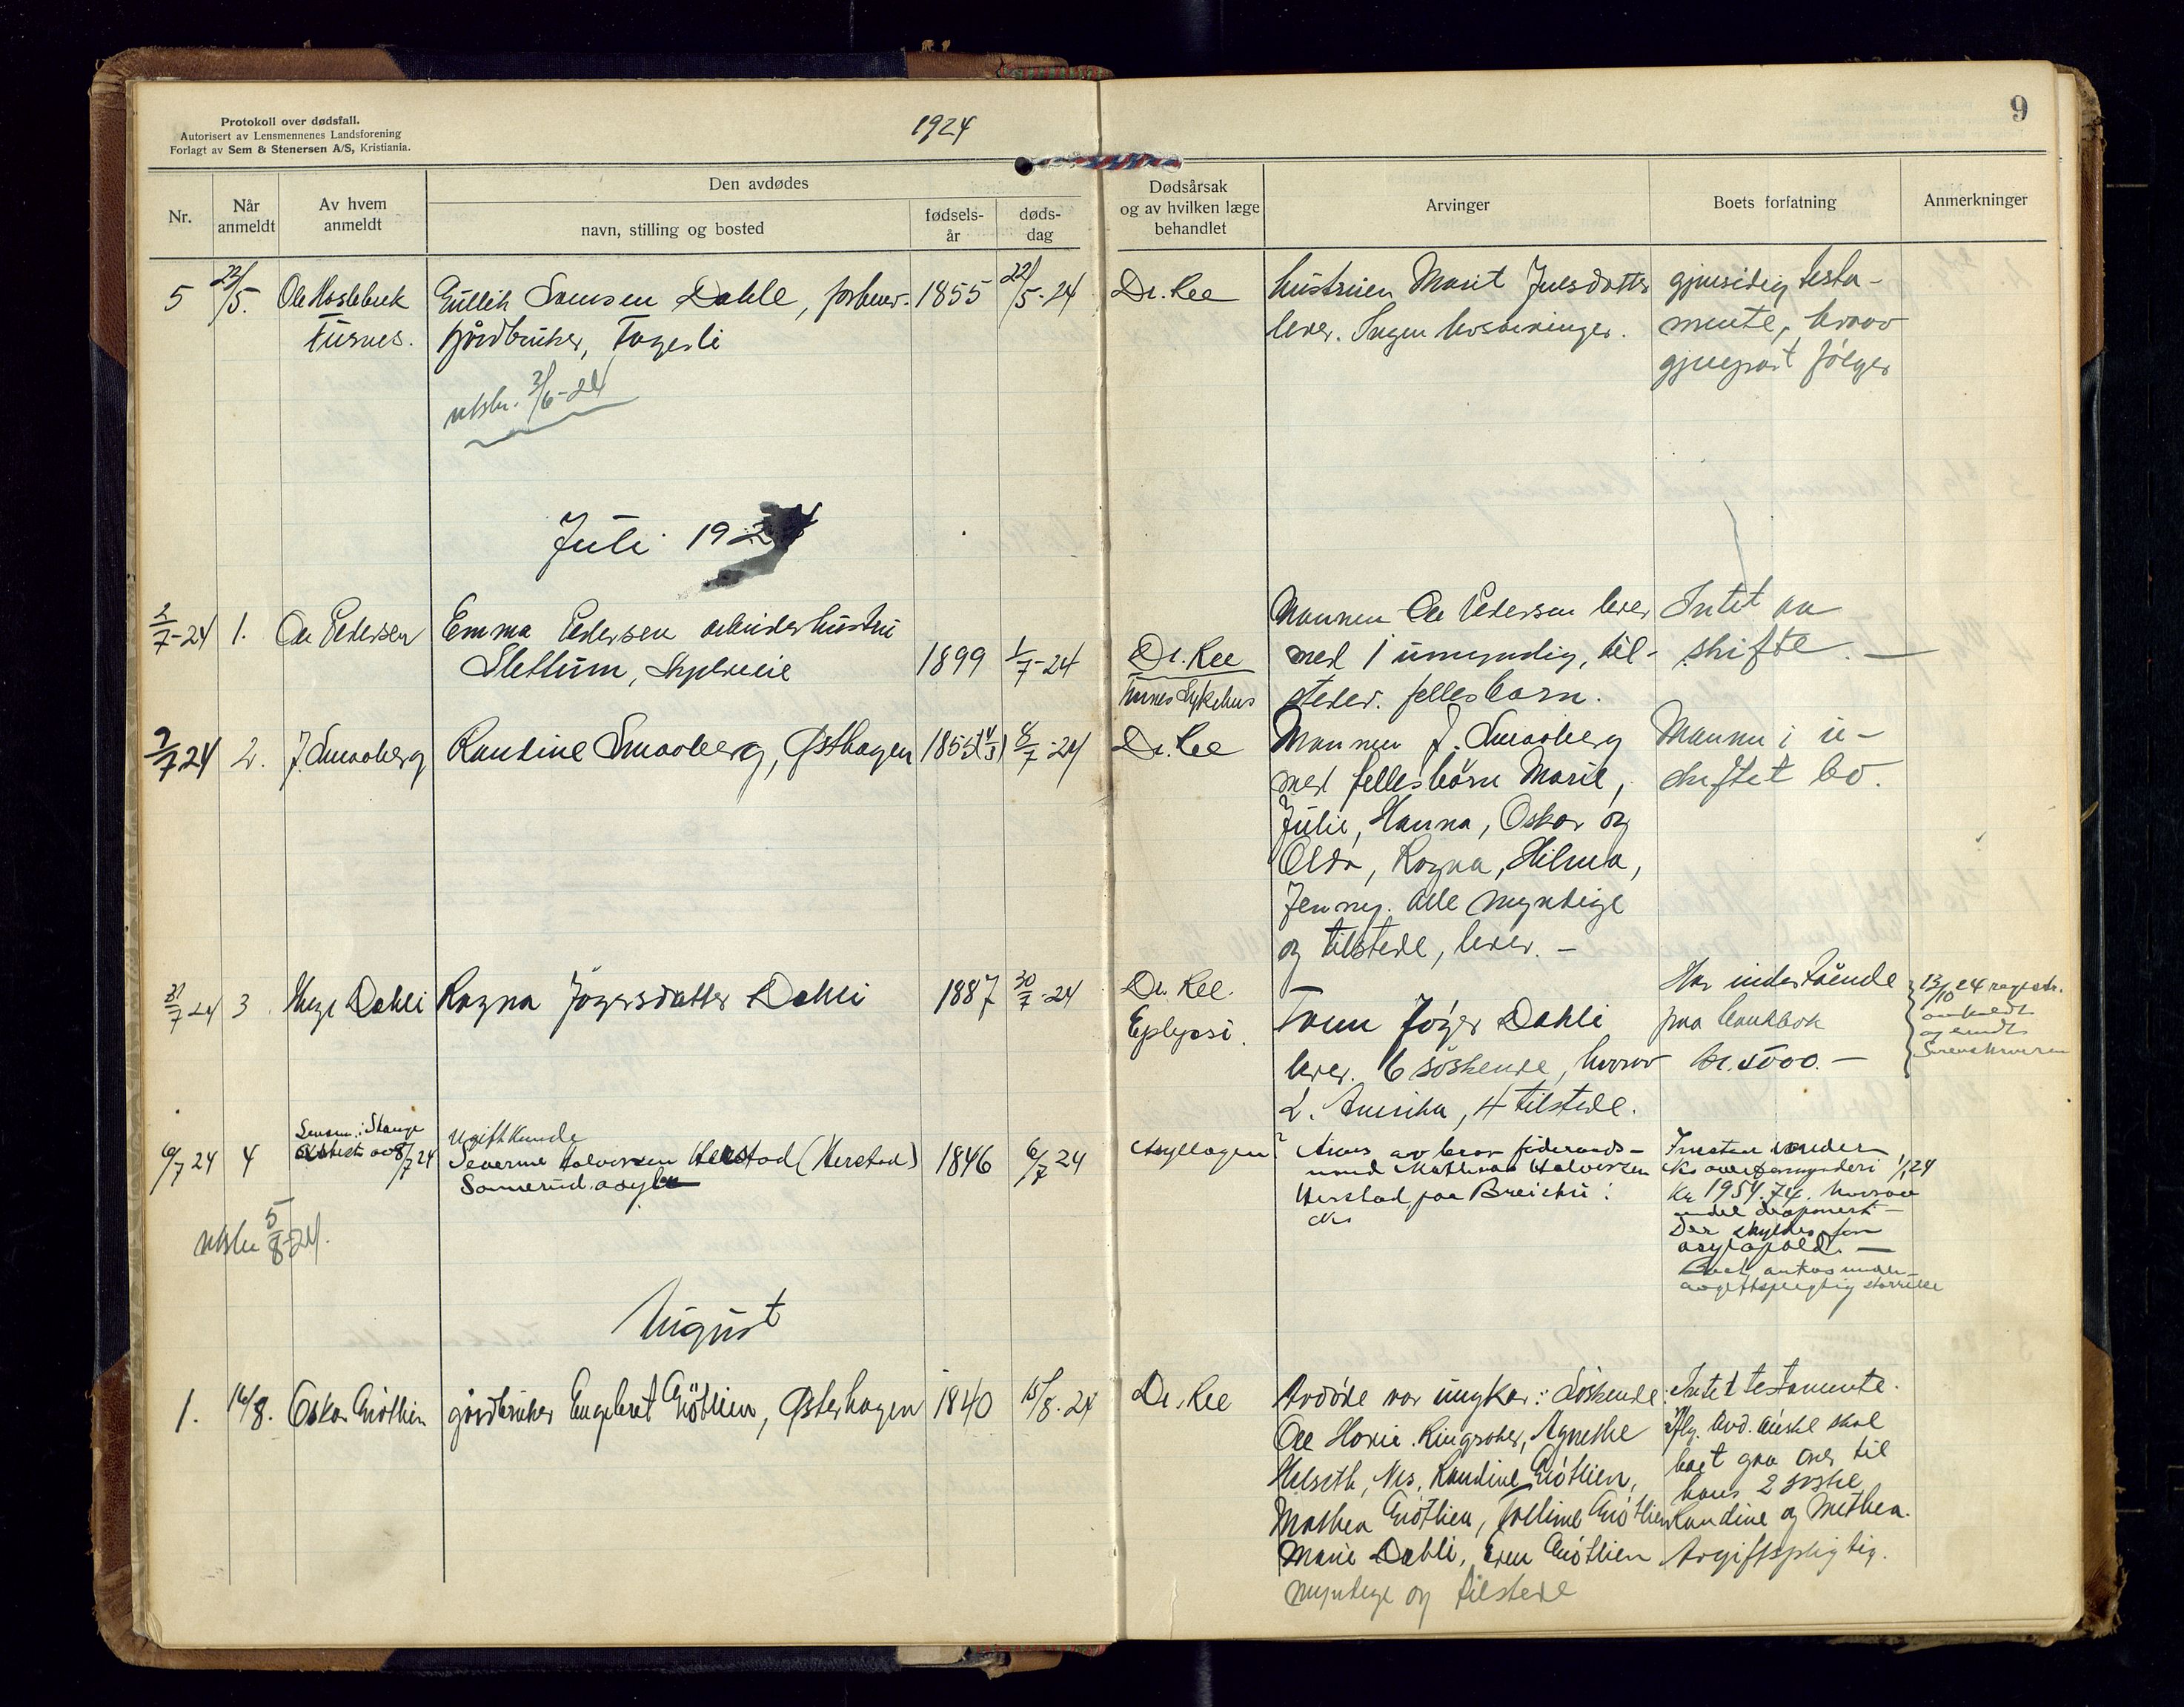 Protokoll over dødsfall.
Autorisert av Lensmennenes Landsforening
Forlagt av Sem & Stenersen A/S, Kristiania.
1924
9
Nr.
Når anmeldt
Av hvem anmeldt
Den avdødes
navn, stilling og bosted
fødsels-år
døds-dag
Dødsårsak og av hvilken læge behandlet
Arvinger
Boets forfatning
Anmerkninger
5 22/5. Ole
Furnes.
Gullik Simensen Dahle, forhenv.
gårdbruker, Fagerli
1855 22/5-24
Dr. Ree
hustruen Marit Juelsdatter
lever. Ingen livsarvinger.
gjensidig testa-
mente, hvorav
gjenpart følger
utskr. 2/6-24
Juli 1924
2/7-24 1. Ole Pedersen
Emma Pedersen arbeiderhustru
Slettum,
1899 1/7-24
Dr. Ree
Furnes Sykehus
Mannen Ole Pedersen lever
med 1 umyndig, til-
steder. fellesbarn.
Intet aa
skifte. —
7/7 24 2. J. Smaaberg
Randine Smaaberg, Østhagen
1855 (4/3) 6/7-24
Dr. Ree
Mannen J. Smaaberg
med fellesbörn Marie,
Julie, Hanna, Oskar og
Olga, Ragna, Hilma,
Jenny. alle myndige
og tilstede, lever. —
Mannen i u-
skiftet bo.
31/7 24 3. Helge Dahli
Ragna Jögersdatter Dahli
1887 30/7-24
Dr. Ree.
Eplepsi.
Faren Jöger Dahli
lever. 6 söskende, hvorav
2. Amerika, 4 tilstede.
Har indestående
paa bankbok
kr. 5000. —
13/10 24 registr.
avholdt
og sendt
Sorenskriveren
9/7 24 4
Lensm. i Stange
8/7 24
Ugift Kunde
Severine Halvorsen Herstad (Herstad)
Sannerud asyl
1846 6/7 24
Asyllægen
?
Arves av bror føderaads-
mand Mathias Halvorsen
Herstad, paa Breiskei i
Nes
Inestaar under
Nes overformynderi 1/1 24
Kr 1954.74. hvorav
endel deponert —
Der skyldes for
asylophold. —
Boet antas under
avgiftspligtig størrelse
utskr 5/8-24.
August
1. 16/8. Oskar Gröthien
gårdbruker Engebret Grötlien, Østerhagen
1840 15/8.24
Dr. Ree
Avdöde var ungkar: Söskende:
Ole Horne. Ringsaker, Agnethe
Helseth, Nes, Randine Grötlien,
Mathea Grötlien, Talline Grötlien
Marie Dahli, Even Grötlien
myndige og tilstede
Intet testamente.
Iflg. Avd. önske skal
boet gaa over til
hans 2 søstre
Randine og Mathea.
Avgiftspligtig.